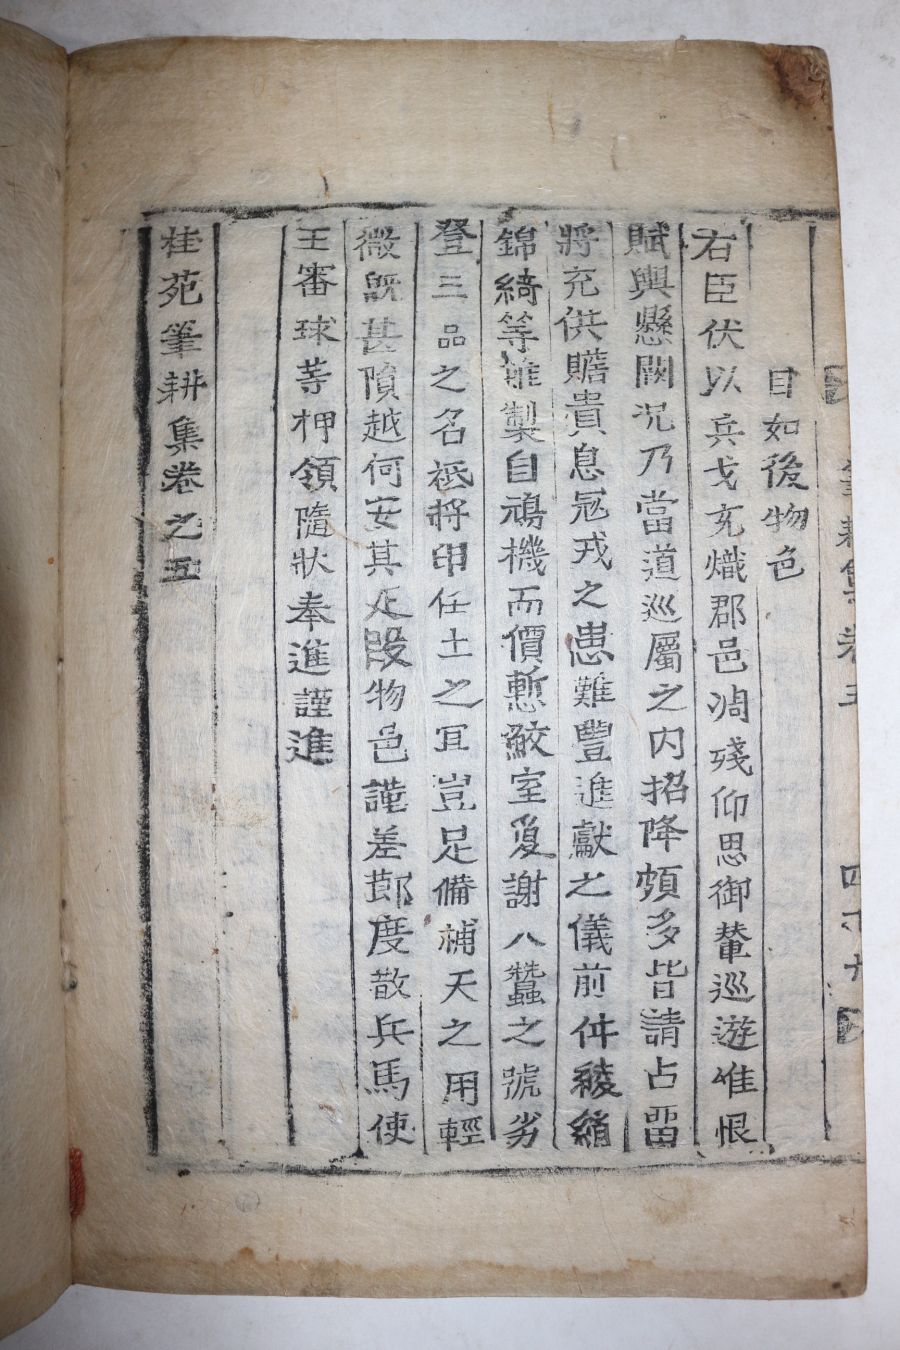 筆耕集卷五
目如後物色
右臣伏以兵戈充熾郡邑凋殘仰思御輦巡遊唯恨
賦輿懸闕況乃當道巡屬之內招降頗多皆請占畱
將充供贍貴息冦戎之患難豐進獻之儀前件綾絹
錦綺等雖製自鴻機而價慙鮫室夐謝八蠶之號劣
登三品之名祗將申任土之冝豈足備補天之用輕
微旣甚隕越何安其疋段物色謹差押衙度散兵馬使
王審球等押領隨狀奉進謹進
桂苑筆耕集卷之五